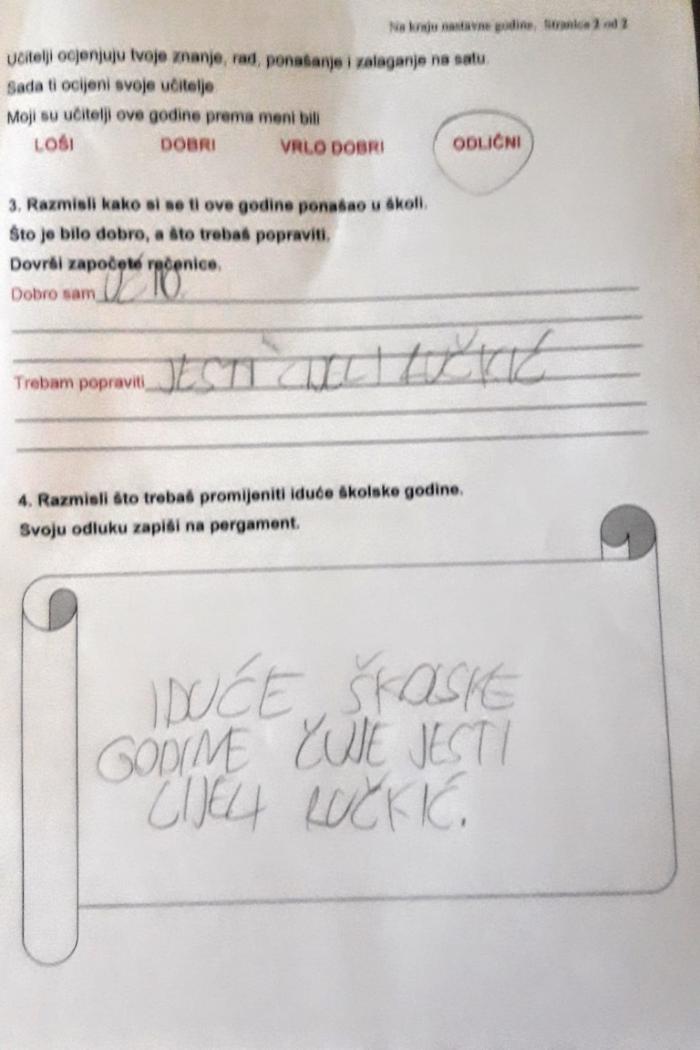 Na kraju nastavne godine, Stranica 2 od 2
Učitelji ocjenjuju tvoje znanje, rad, ponašanje i zalaganje na satu.
Sada ti ocijeni svoje učitelje
Moji su učitelji ove godine prema meni bili
LOŠI DOBRI VRLO DOBRI ODLIČNI
3. Razmisli kako si se ti ove godine ponašao u školi.
Što je bilo dobro, a što trebaš popraviti.
Dovrši započete rečenice.
Dobro sam UČIO.
Trebam popraviti JESTI CIJELI RUČKIĆ
4. Razmisli što trebaš promijeniti iduće školske godine.
Svoju odluku zapiši na pergament.
IDUĆE ŠKOLSKE
GODINE JESTI
CIJELI RUČKIĆ.